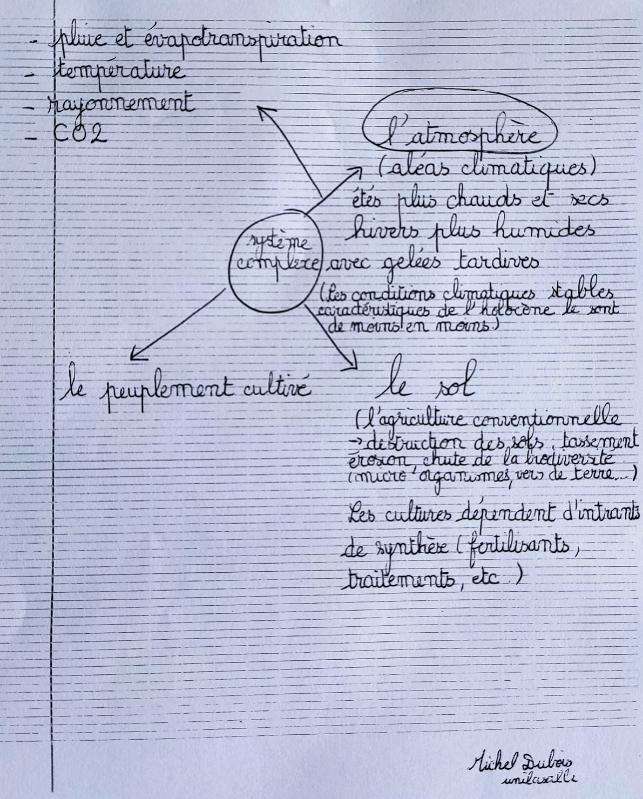 - pluie et évapotranspiration
- température
- rayonnement
- CO2
l'atmosphère
(aléas climatiques)
étés plus chauds et secs
hivers plus humides
avec gelées tardives
(Les conditions climatiques stables
caractéristiques de l'holocène le sont
de moins en moins)
système
complexe
le peuplement cultivé
le sol
(l'agriculture conventionnelle
→ destruction des sols, tassement
érosion, chute de la biodiversité
(micro organismes, vers de terre...)
Les cultures dépendent d'intrants
de synthèse (fertilisants,
traitements, etc..)
Michel Dubois
unilasalle